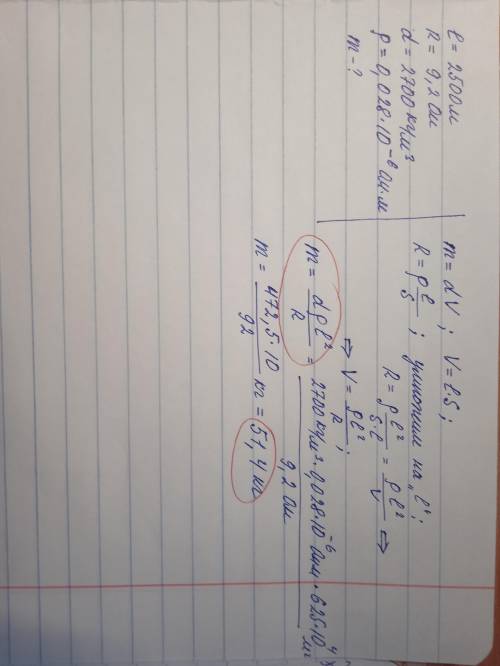 l = 2500м
R = 9,2 Ом
d = 2700 кг/м³
ρ = 0,028·10⁻⁶ Ом·м
m - ?
m = dV ; V = l·S ;
R = ρ l/S ; умножим на „l“ ;
R = ρl²/S·l = ρl²/V ⇒
⇒ V = ρl²/R ;
m = dρl²/R = 2700 кг/м³·0,028·10⁻⁶ Омм·625·10⁴ м²/9,2 Ом
m = 472,5·10/92 кг = 51,4 кг